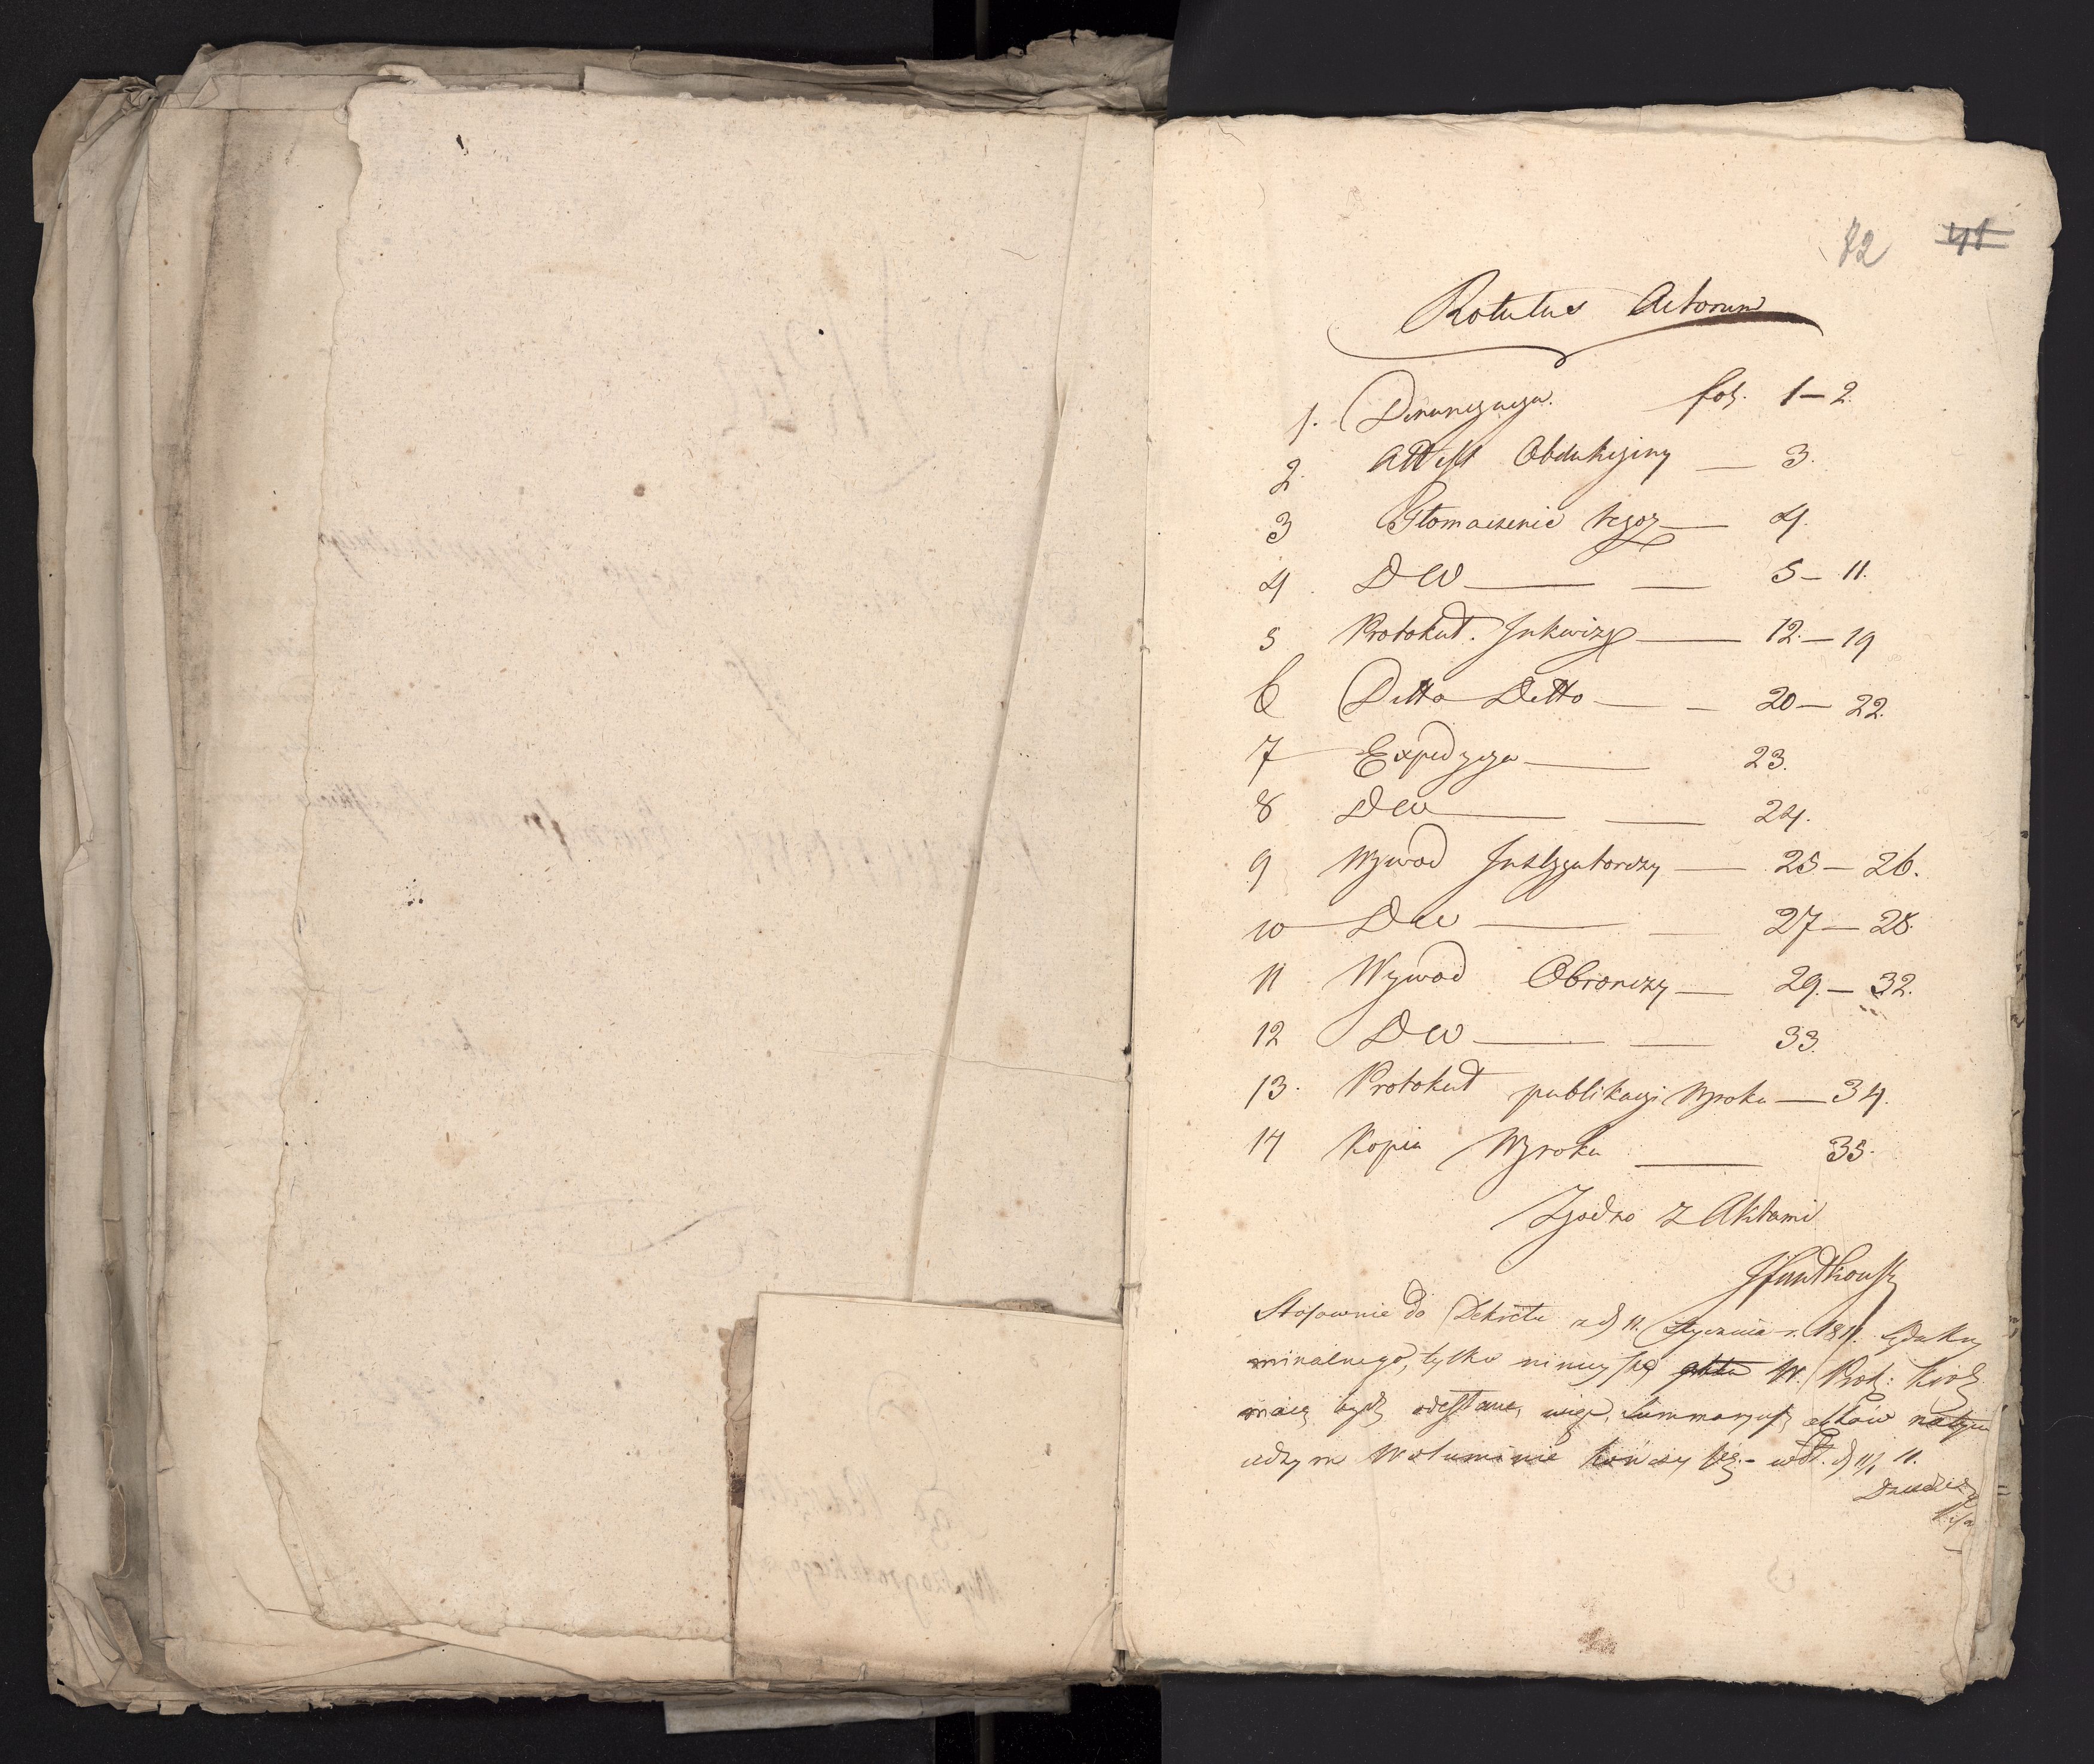 82 41
Rotulus Actorum
1. Denuncyacya. fol. 1–2.
2. Attest Obdukcyiny — 3.
3 Tłomaczenie tegoz — 4.
4 Dto — — 5–11.
5 Protokuł. Inkwizy — 12.–19
6 Ditto Detto — — 20–22.
7 Expedycya — 23.
8 Dto — — 24.
9 Wywod Instygatorczy — 25–26.
10 Dto — — 27–28.
11 Wywod Obronczy — 29.–32.
12 Dto — — 33.
13. Protokuł publikacyi Wyroku — 34.
14 Kopia Wyroku — 35.
Zgodno z Aktami
Stosownie do Dekretu z d 11. Stycznia r. 1811. Sądu Kry
minalnego, tylko ninieysze akta W. Prok:
maią bydź odesłane, więc Summaryusz aktów
w Woluminie kończy się.